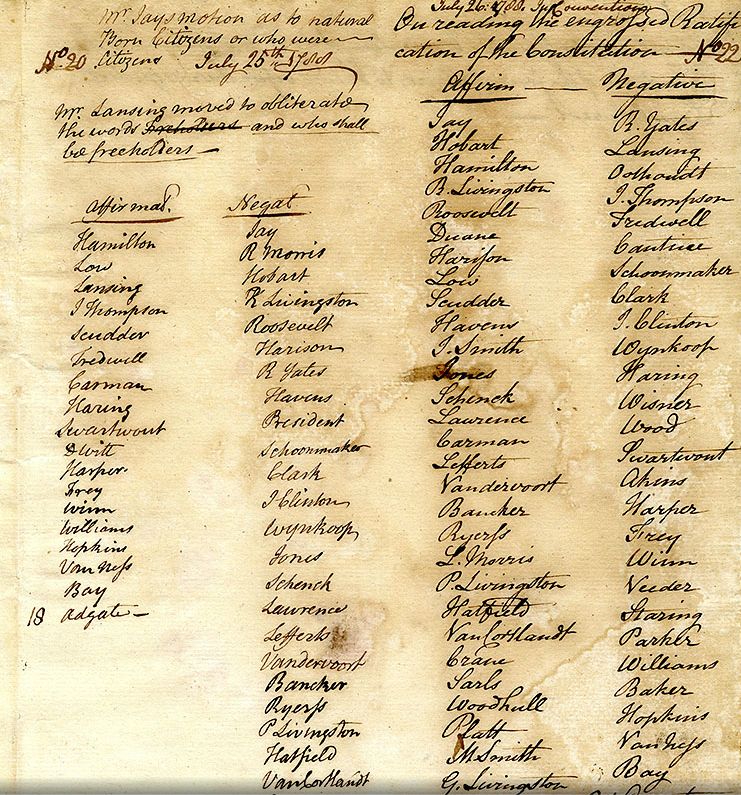 Mr. Jays motion as to national
Born Citizens or who were
No. 20 Citizens July 25th 1788
Mr. Lansing moved to obliterate
the words Freeholders and who shall
be freeholders —
Affirmat.
Hamilton
Low
Lansing
I Thompson
Scudder
Tredwell
Carman
Haring
Swartwout
DWitt
Harper
Frey
Winn
Williams
Hopkins
Van Ness
Bay
18 Adgate —
Negat
Jay
R Morris
Hobart
R Livingston
Roosevelt
Harison
R Yates
Havens
President
Schoonmaker
Clark
J Clinton
Wynkoop
Jones
Schenck
Lawrence
Lefferts
Vandervoort
Bancker
Ryerss
P Livingston
Hatfield
Van Cortlandt
July 26. 1788. In Convention
On reading the engrossed Ratifi
cation of the Constitution — No. 22
Affirm —
Jay
Hobart
Hamilton
R. Livingston
Roosevelt
Duane
Harison
Low
Scudder
Havens
J. Smith
Jones
Schenck
Lawrence
Carman
Lefferts
Vandervoort
Bancker
Ryerss
L. Morris
P. Livingston
Hatfield
Van Cortlandt
Crane
Sarls
Woodhull
Platt
M Smith
G. Livingston
Negative
R. Yates
Lansing
Oothoudt
I. Thompson
Tredwell
Cantine
Schoonmaker
Clark
J. Clinton
Wynkoop
Haring
Wisner
Wood
Swartwout
Akins
Harper
Frey
Winn
Veeder
Staring
Parker
Williams
Baker
Hopkins
Van Ness
Bay